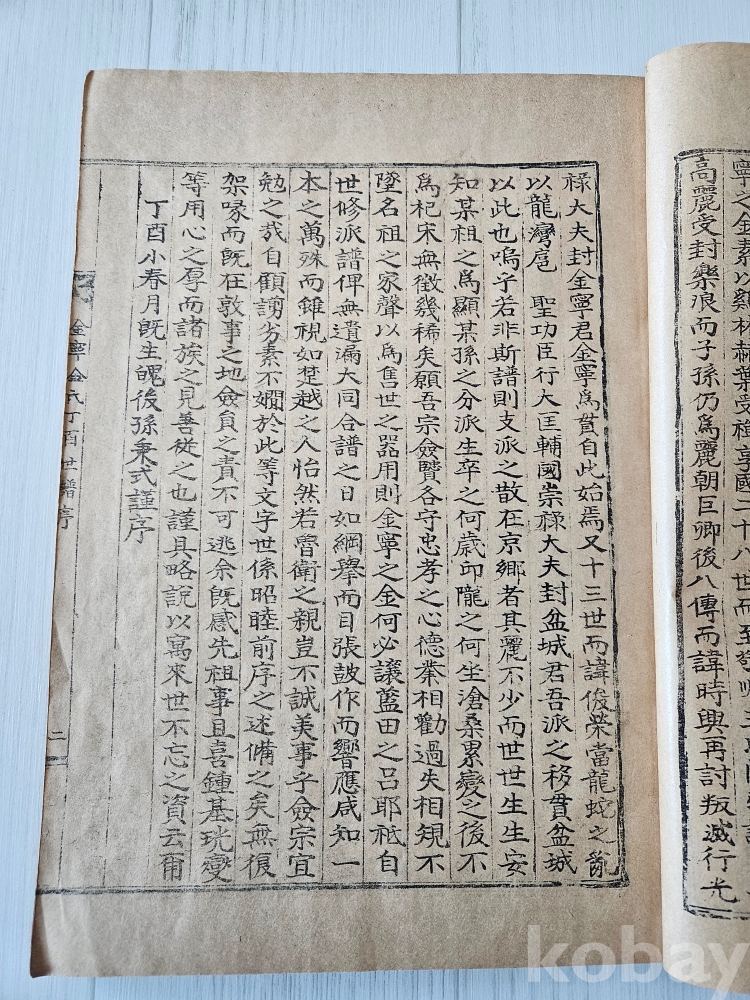 寧之金素以雞林赫葉受禪享國二十八世而至敬順王
高麗受封樂浪而子孫仍爲麗朝巨卿後八傳而諱時興再討叛滅行光
祿大夫封金寧君金寧爲貫自此始焉又十三世而諱俊榮當龍蛇之亂
以龍灣扈 聖功臣行大匡輔國崇祿大夫封盆城君吾派之移貫盆城
以此也嗚乎若非斯譜則支派之散在京鄕者其麗不少而世世生生安
知某祖之爲顯某孫之分派生卒之何歲卬隴之何坐滄桑累變之後不
爲杞宋無徵幾稀矣願吾宗僉賢各守忠孝之心德業相勸過失相規不
墜名祖之家聲以爲舊世之器用則金寧之金何必讓藍田之呂耶祗自
世修派譜俾無遺漏大同合譜之日如綱擧而目張鼓作而響應咸知一
本之萬殊而雖視如楚越之人怡然若魯衛之親豈不誠美事乎僉宗宜
勉之哉自顧謭劣素不嫺於此等文字世係昭睦前序之述備之矣無復
架喙而旣在敦事之地僉員之責不可逃余旣感先祖事且喜鍾基珖燮
等用心之厚而諸族之見善從之也謹具略說以寓來世不忘之資云爾
丁酉小春月旣生魄後孫秉式謹序
金寧金氏丁酉世譜序
二
kobay